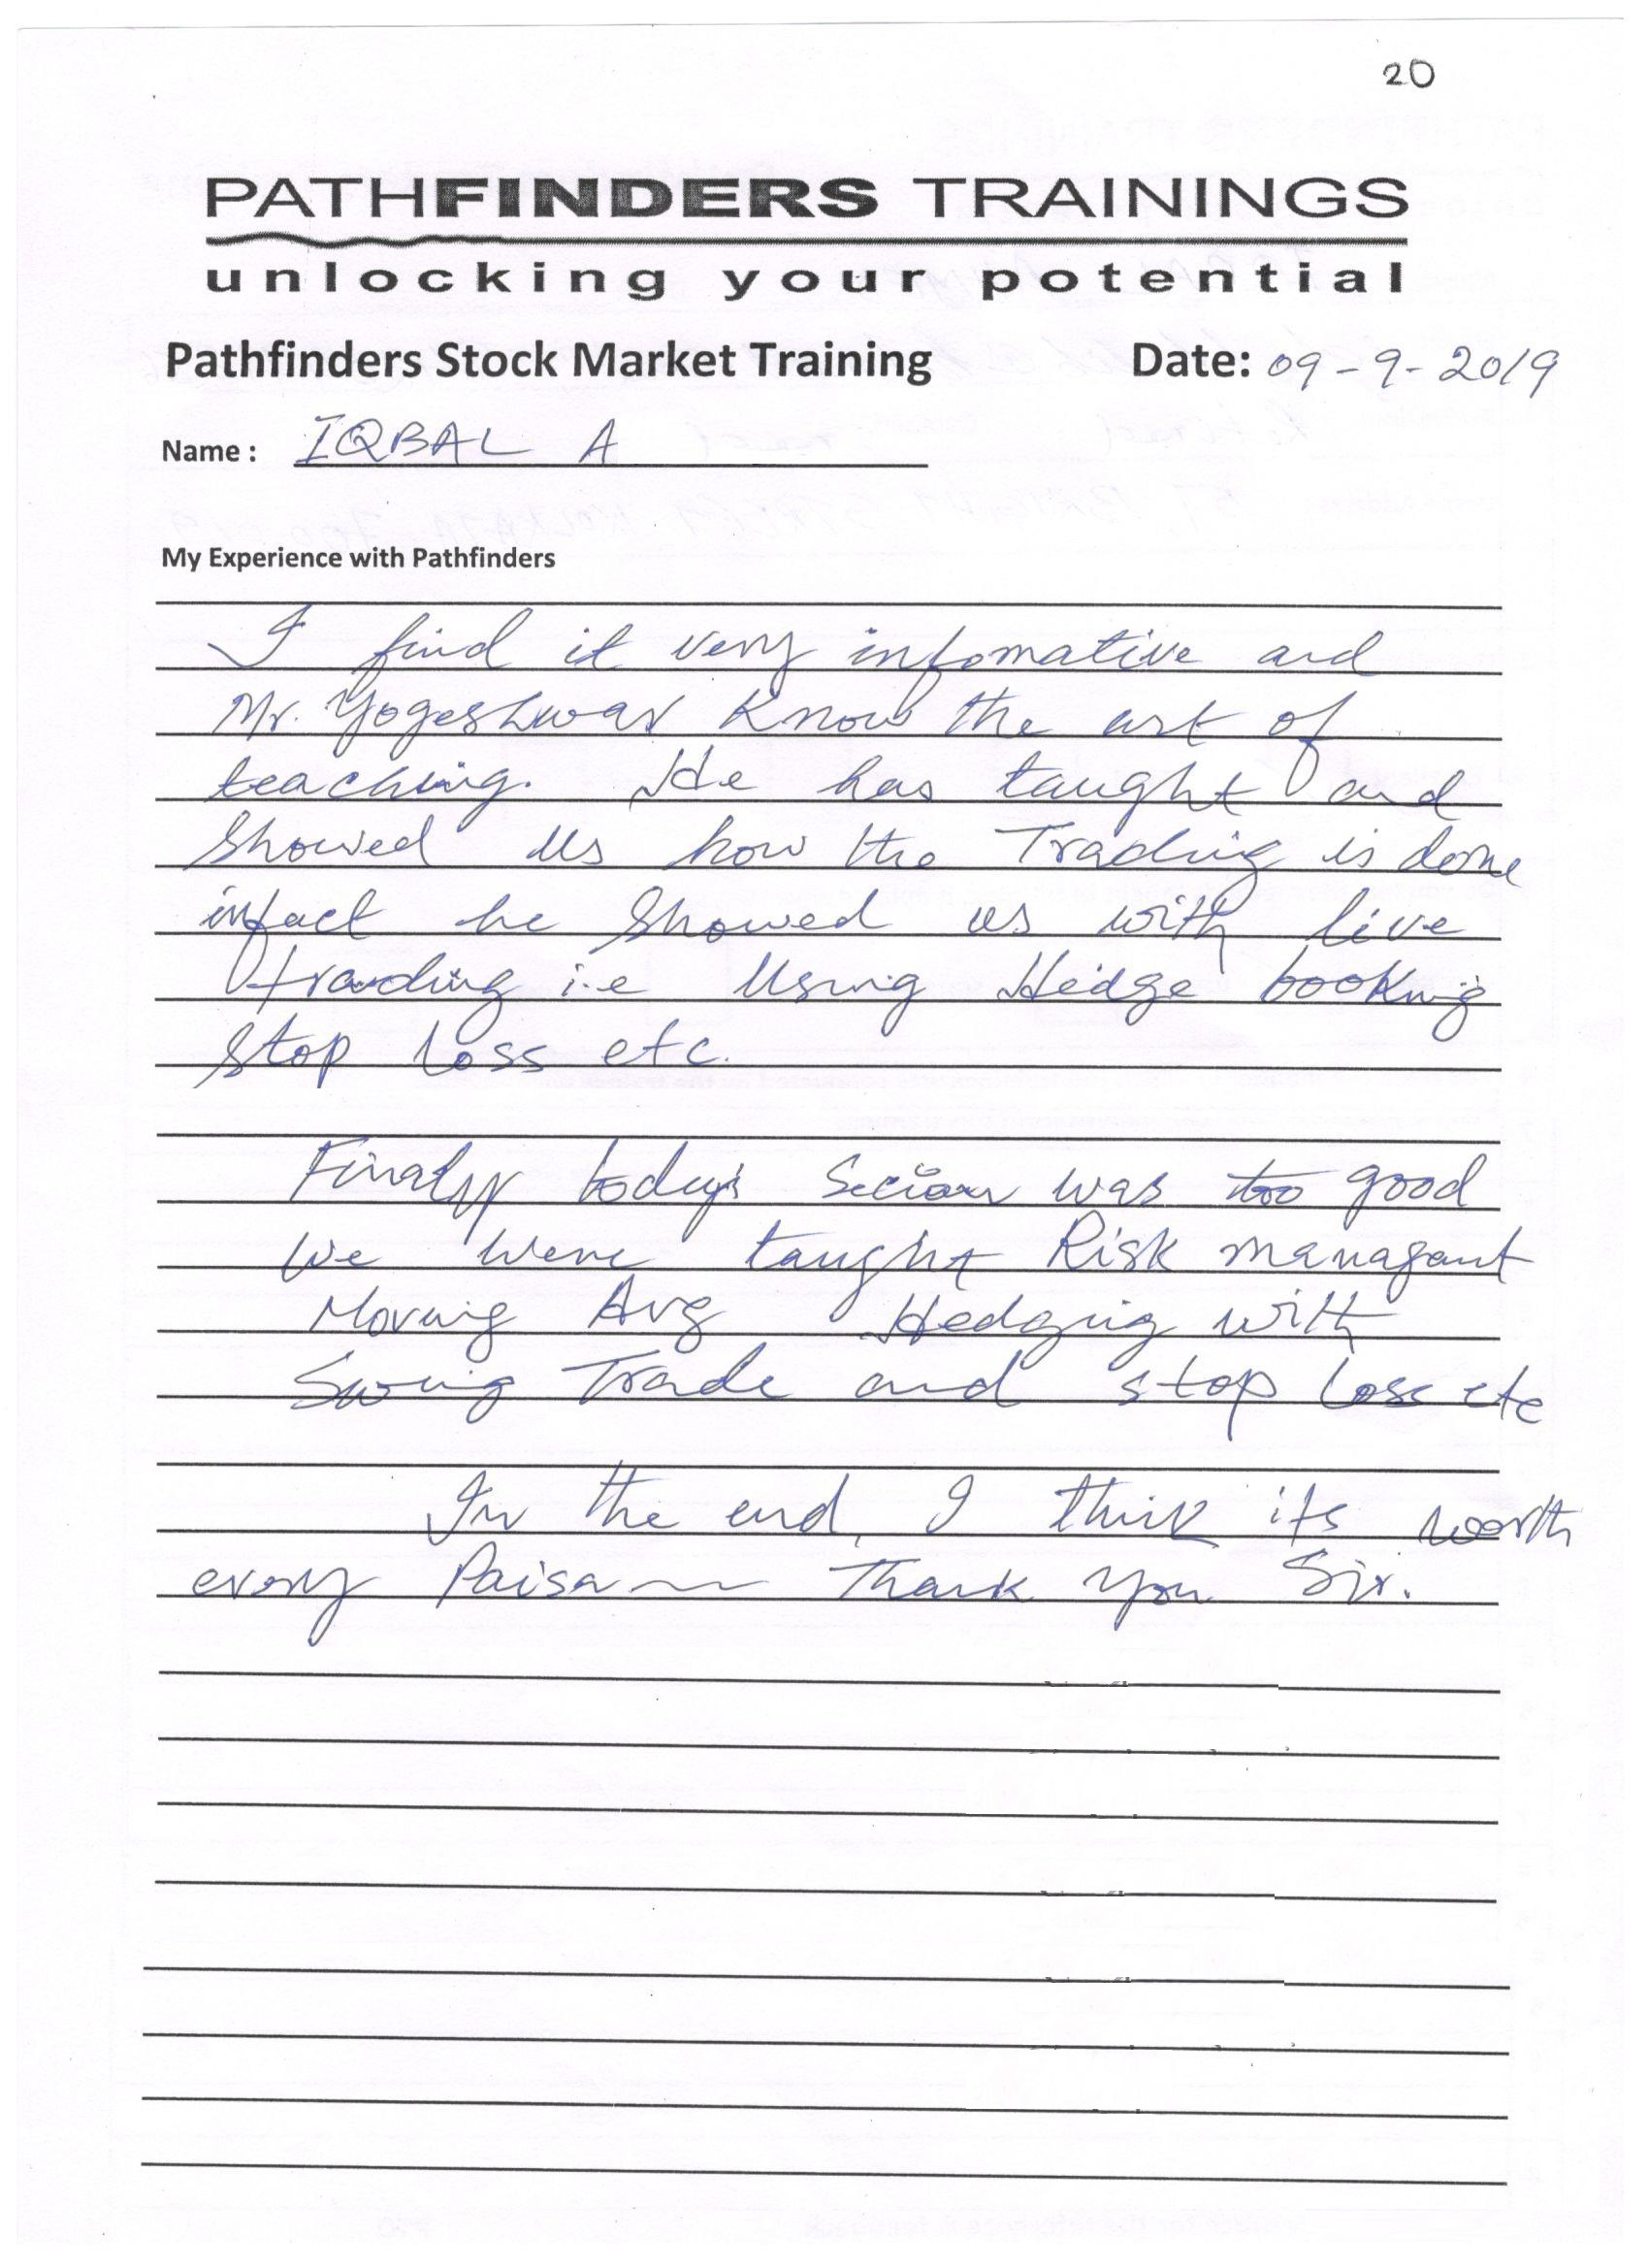 20
PATHFINDERS TRAININGS
unlocking your potential
Pathfinders Stock Market Training Date: 09-9-2019
Name : IQBAL A
My Experience with Pathfinders
I find it very infomative and
Mr. Yogeshwar Know the art of
teaching. He has taught and
Showed Us how the Trading is done
infact he Showed us with live
trading i.e Using Hedge booking
Stop Loss etc.
Finally today's was too good
We were taught Risk managant
Moving Avg Hedging with
Swing Trade and stop Loss etc
In the end, I think its worth
every Paisa Thank you Sir.